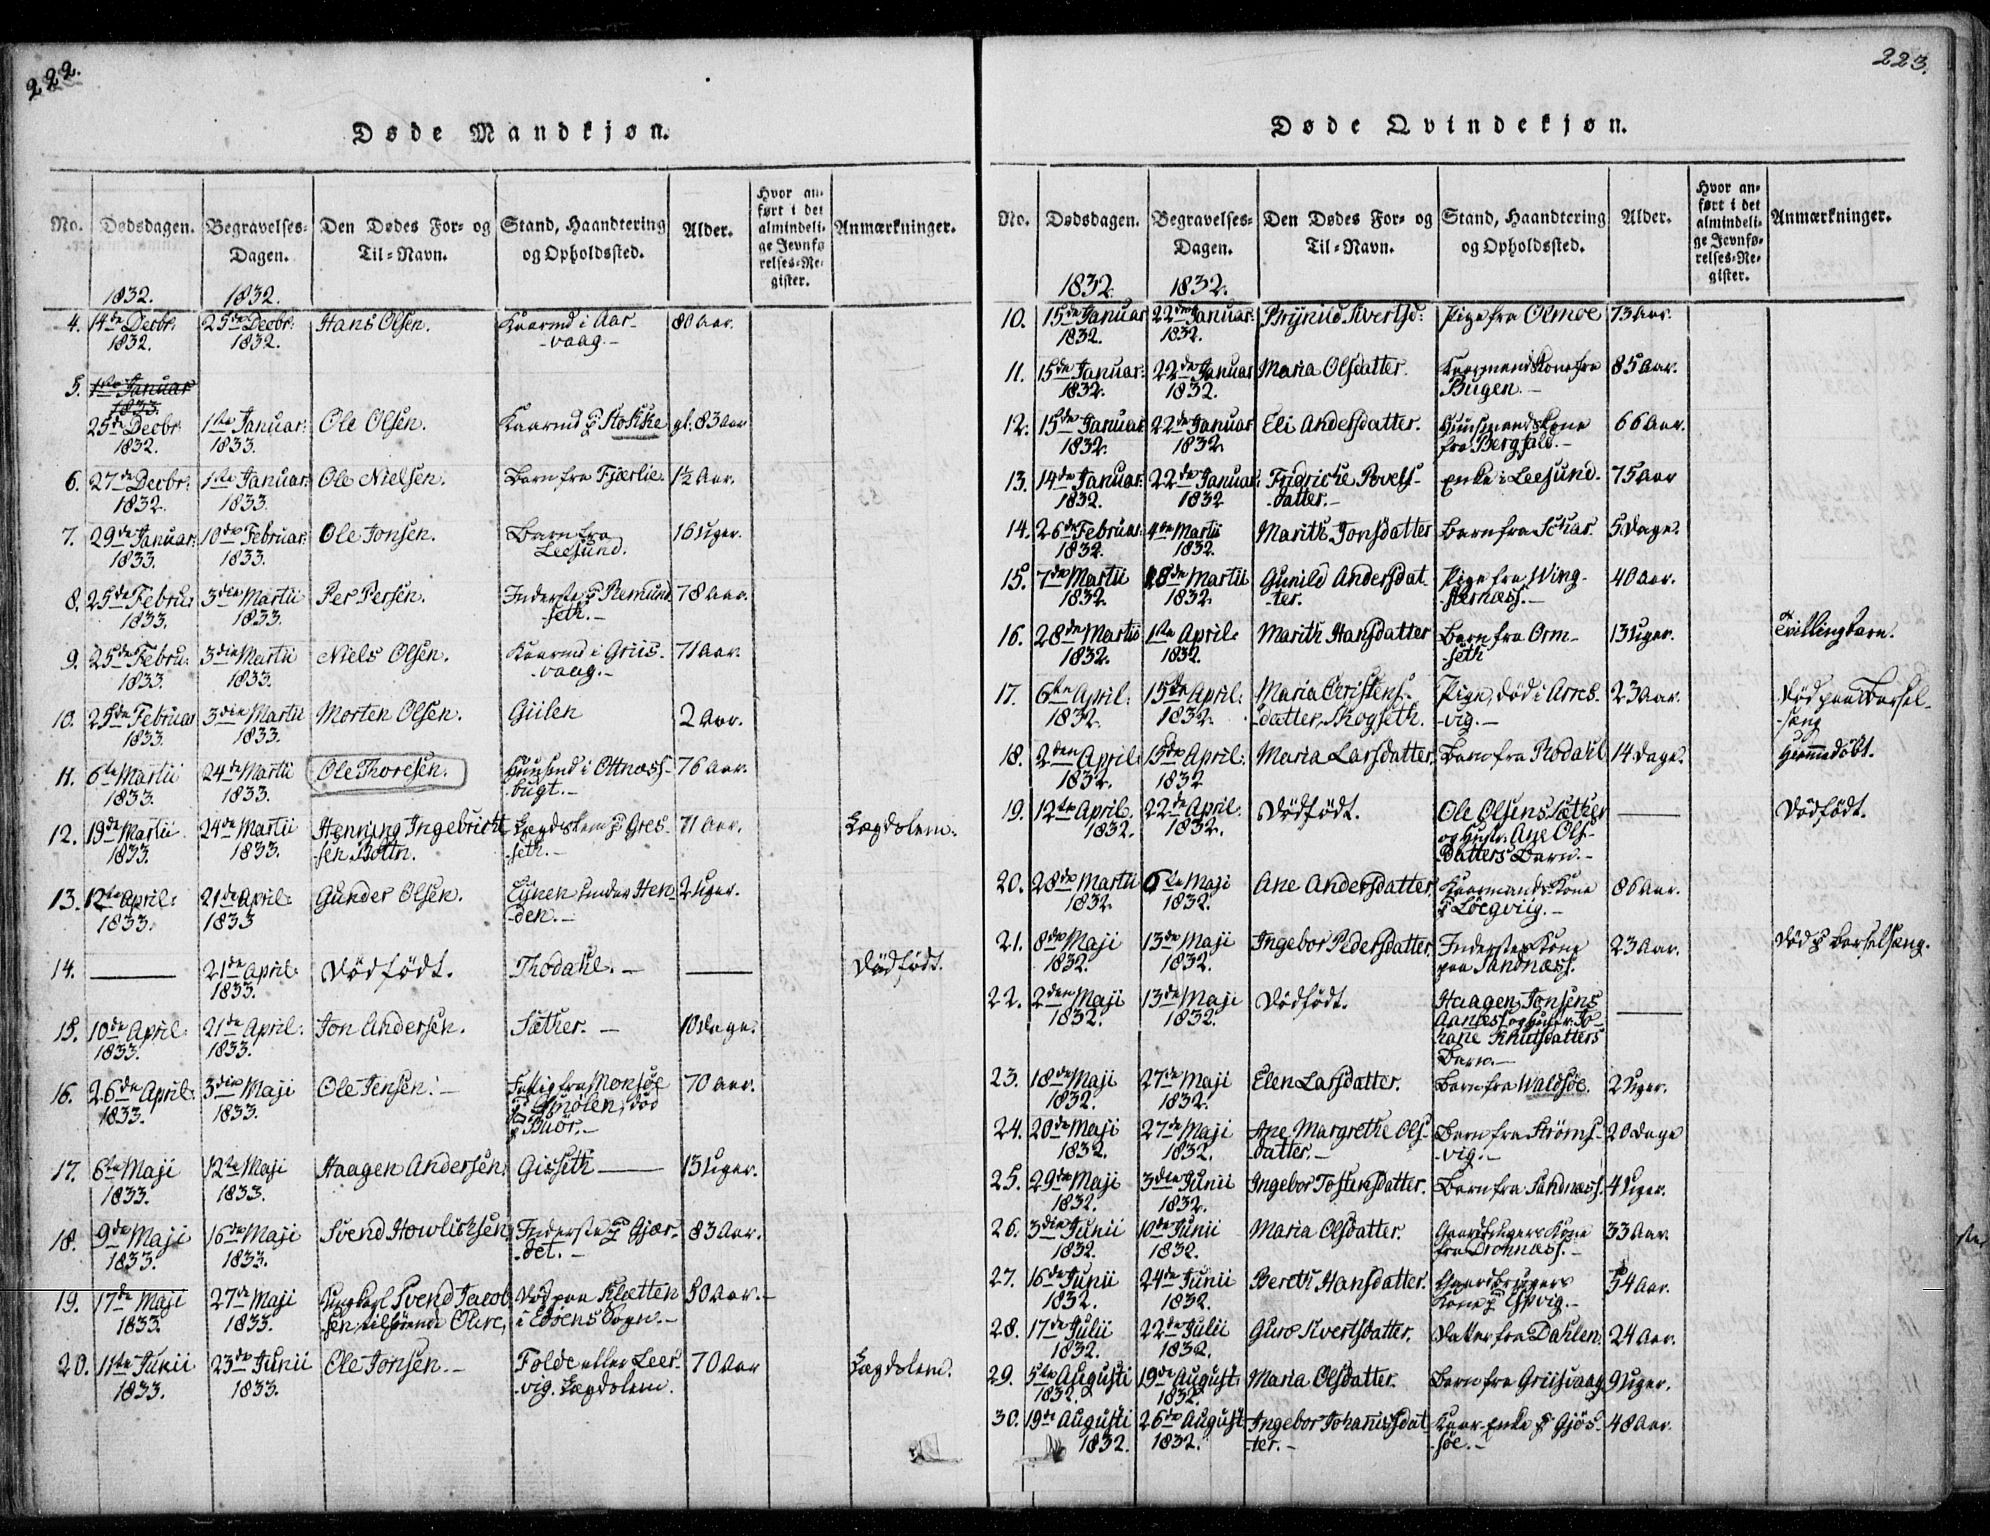 222.
Døde Mandkjøn.
No.
Dødsdagen.
Begravelses-
Dagen.
Den Dødes For- og
Til-Navn.
Stand, Haandtering
og Opholdssted.
Alder.
Hvor an-
ført i det
almindeli-
ge Jevnfø-
relses-Re-
gister.
Anmærkninger.
1832. 1832.
4. 14de Decbr: 25de Decbr: Hans Olsen. Kaarmd i Aar- 80 Aar.
1832. 1832. -vaag.-
5. 1ste Januar
1833.
25de Decbr: 1ste Januar: Ole Olsen. Kaarmd p Stokke gl. 83 Aar
1832. 1833.
6. 27de Decbr: 1ste Januar: Ole Nielsen. Barn fra Fjærlie. 1½ Aar.
1832. 1833.
7. 29de Januar: 10de Februar: Ole Jonsen. Barn fra 16 Uger.
1833. 1833. Leesund.
8. 25de Febru: 3die Martii Per Persen. Inderste p Remund 78 Aar.
1833. 1833. -seth.-
9. 25de Febru: 3die Martii Niels Olsen. Kaarmd i Griis- 71 Aar.
1833. 1833. -vaag.-
10. 25de Februar 3die Martii Morten Olsen. Gulen 2 Aar.
1833. 1833.
11. 6te Martii 24de Martii Ole Thoresen. Huusmd i Ottnæss- 76 Aar.
1833. 1833. bugt.-
12. 19de Martii 24de Martii Henning Ingebricht- Lægdslem p Gres- 71 Aar. Lægdslem.
1833. 1833. sen Bottn. -seth.-
13. 12te April: 21de April: Gunder Olsen. Eynen under Hen- 2 Uger.
1833. 1833 -den.-
14. — 21de April: Dödfödt. Thodahl.- — Dödfödt.
1833.
15. 10de April: 21de April: Jon Andersen. Sæther. - 10 Dage.
1833. 1833.
16. 26de April: 3die Maji Ole Jensen.- Fattig fra Monsöe 70 Aar.
1833. 1833. p Smölen, död
p Buör.-
17. 6te Maji 12te Maji Haagen Andersen. Gisseth — 13 Uger.
1833. 1833.
18. 9de Maji 16de Maji Svend Howlichsen Inderste p Gjær- 83 Aar.
1833. 1833. -det.-
19. 17de Maji 27de Maji Ungkarl Svend Jacob- Död paa Kletten 50 Aar.-
1833. 1833. sen tilhörende Öure, i Edöens Sogn.-
20. 11te Junii 23de Junii Ole Jonsen.- Folde eller Leer- 70 Aar Lægdslem.
1833. 1833. -vig. Lægdslem.
223.
Døde Qvindekjøn.
No.
Dødsdagen.
Begravelses-
Dagen.
Den Dødes For- og
Til-Navn.
Stand, Haandtering
og Opholdssted.
Alder.
Hvor an-
ført i det
almindeli-
ge Jevnfø-
relses-Re-
gister.
Anmærkninger.
1832. 1832.
10. 15de Januar 22de Januar: Brynild Iversd: Pige fra Olmoe 73 Aar.
1832. 1832.
11. 15de Januar: 22de Januar Maria Olsdatter. Kaarmands Kone fra 85 Aar.
1832. 1832. Bugen.-
12. 15de Januar: 22de Januar Eli Andersdatter. Huusmands Kone 66 Aar.
1832. 1832. fra Bergfald.-
13. 14de Januar. 22de Januar: Fridriche Povels- Enke i Leesund. 75 Aar
1832. 1832 -datter.-
14. 26de Februar: 4de Martii Marith Jonsdatter Barn fra Schar. 5 Dage.
1832. 1832.
15. 7de Martii 18de Martii Gunild Andersdat- Pige fra Wing- 40 Aar.
1832. 1832. -ter. -sternæss.-
16. 28de Martii 1ste April: Marith Hansdatter Barn fra Orm- 13 Uger. Tvillingbarn.
1832. 1832. -seth
17. 6te April: 15de April: Maria Christens- Pige, död i Arres- 23 Aar. Död paa Barsel-
1832. 1832. datter Skogseth. -vig.- -seng
18. 2den April: 15de April: Maria Larsdatter. Barn fra Rodahl 14 Dage. Hiemmedöbt.
1832. 1832
19. 12te April. 22de April: Dödfödt. Ole Olsens Sæther — Dödfödt.
1832. 1832. og Hustr: Ane Ols-
datters Barn.-
20. 28de Martii 6te Maji Ane Andersdatter. Kaarmands Kone 86 Aar.
1832. 1832. p Löegviig.-
21. 8de Maji 13de Maji Ingebor Pedersdatter. Inderstes Kone 23 Aar. Död p Barselseng.
1832. 1832. paa Sandnæss.
22. 2den Maji 13de Maji Dödfödt. Haagen Jonsens —
1832. 1832. Aanæss og Hustr: Jo-
hane Knutsdatters
Barn.-
23. 18de Maji 27de Maji Elen Larsdatter. Barn fra Waldsöe. 2 Uger.
1832. 1832.
24. 20de Maji 27de Maji Ane Margrethe Ols- Barn fra Ströms- 20 Dage
1832. 1832. datter.- -vig.-
25. 29de Maji 3die Junii Ingebor Tostensdatter. Barn fra Sandnæss. 4 Uger.
1832. 1832.
26. 3die Junii 10de Junii Maria Olsdatter. Gaardbrugers Kone 33 Aar
1832. 1832. fra Dronnæss.-
27. 16de Junii 24de Junii Bereth Hansdatter. Gaardbrugers 54 Aar.
1832. 1832. Kone p Espvig.-
28. 17de Julii 22de Julii Guro Iversdatter. Datter fra Dahlen. 24 Aar.
1832. 1832.
29. 5te Augusti 19de August: Maria Olsdatter. Barn fra Griisvaag 9 Uger.
1832. 1832.
30. 19de Augusti 26de August: Ingebor Johannsdat- Kaar-Enke p Gjös- 48 Aar.
1832. 1832. -ter.- -söe.-